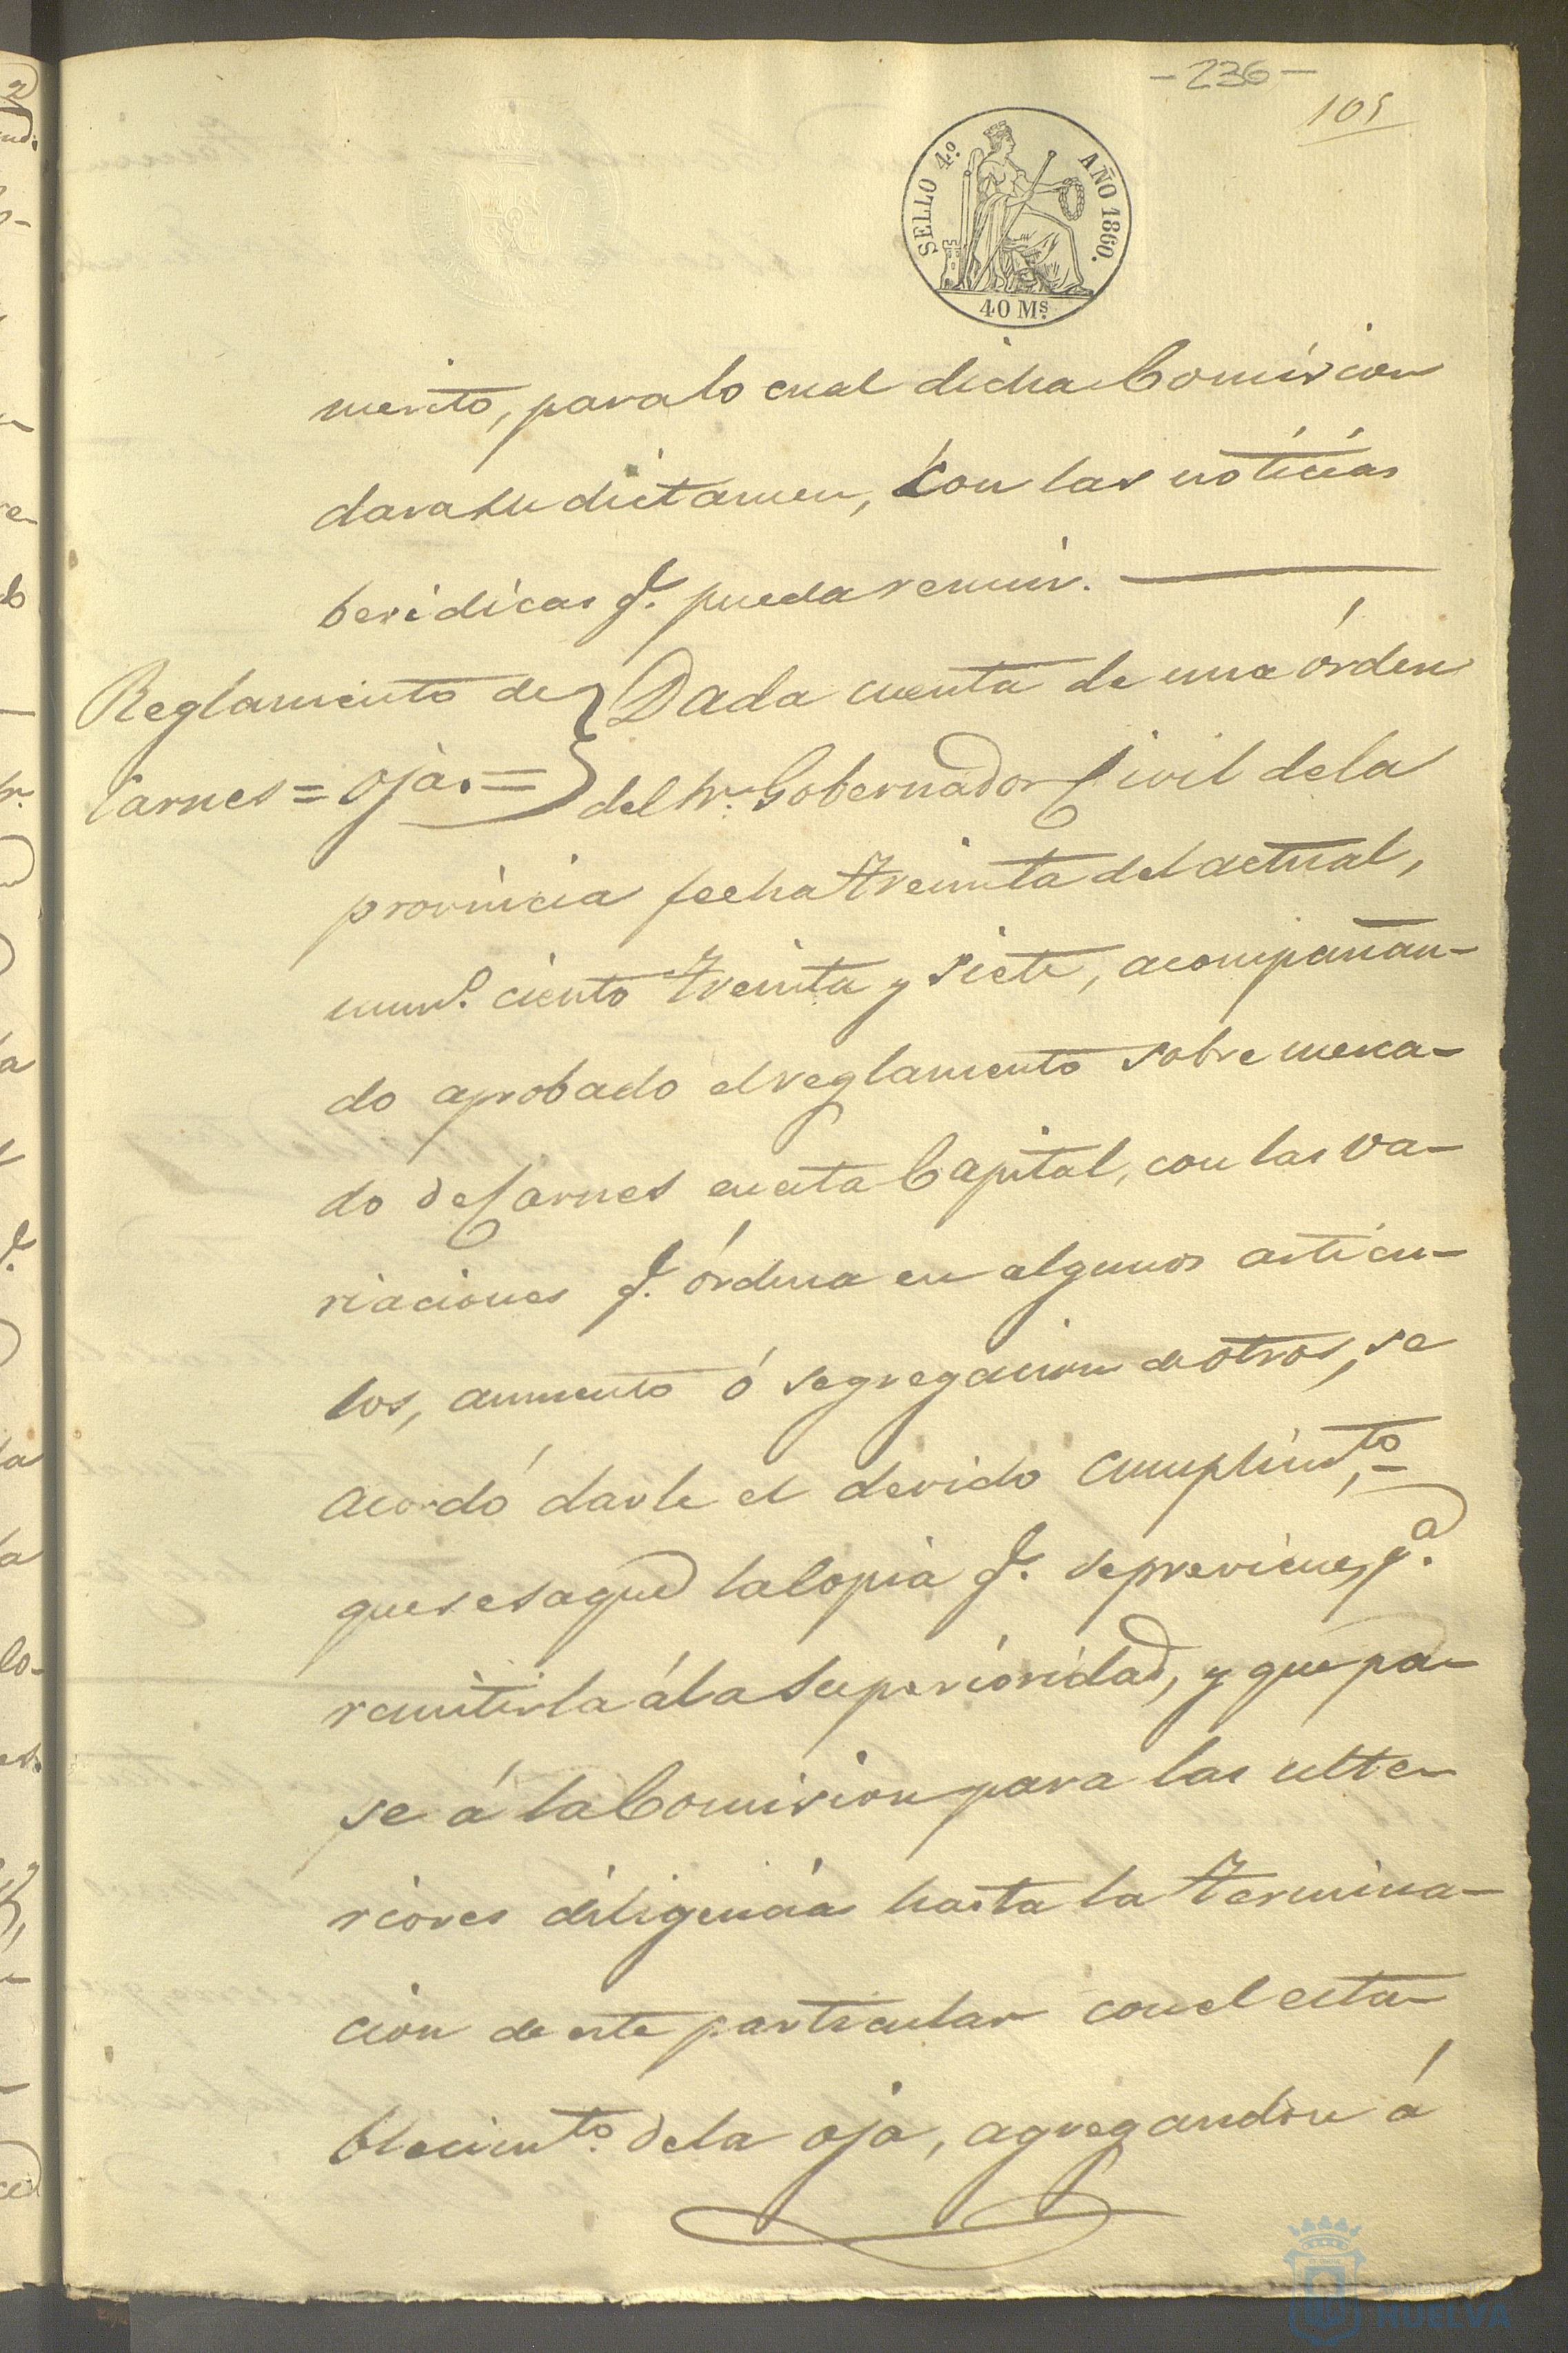 - 236 -
105
SELLO 4º. AÑO 1860.
40 Ms.
merito, para lo cual dicha Comision
dara su dictamen, con las noticias
beridicas q. pueda reunir.
Reglamento de
Carnes = oja. =
Dada cuenta de una órden
del Sr. Gobernador Civil de la
provincia fecha treinta del actual,
numº. ciento treinta y siete, acompañan-
do aprobado el reglamento sobre merca-
do de Carnes en esta Capital, con las va-
riaciones q. órdena en algunos articu-
los, aumento ó segregacion de otros, se
acordó darle el devido cumplimto,-
que se saque la Copia q. se previene, pª.
remitirla á la Superioridad, y que pa-
se á la Comision para las ulte-
riores diligencias hasta la termina-
cion de este particular con el esta-
blecimto. de la oja, agregandose á
Ayuntamiento
HUELVA